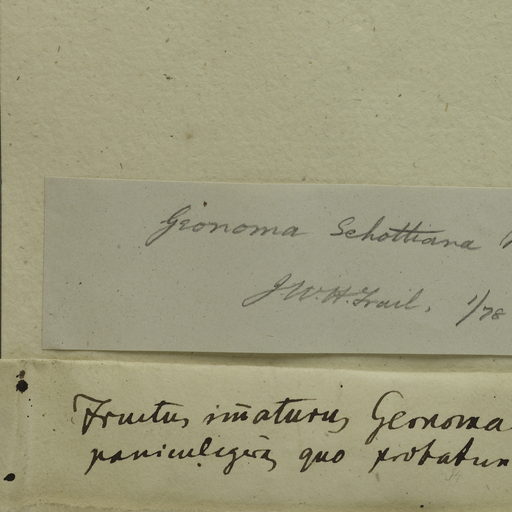 Geonoma Schottiana
J.W.H. Trail, 1/78
Fructus im̄aturus Geonoma
paniculigera quo probatur